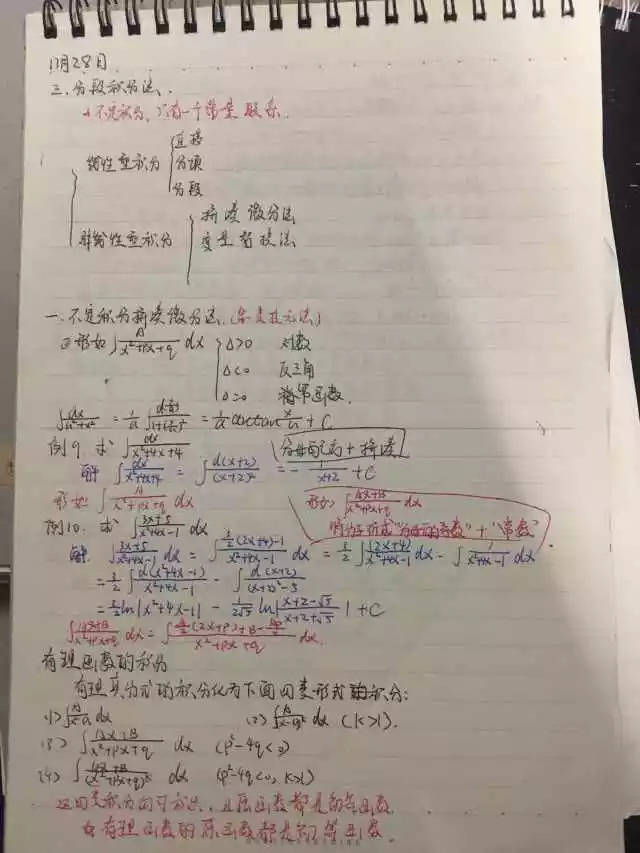 11月28日
三.分段积分法.
不定积分,只有一个常量 联系.
线性型积分 { 直接
分项
分段
非线性型积分 { 拼凑微分法
变量替换法
一.不定积分拼凑微分法.
①形如∫A/(x²+px+q) dx { Δ>0 对数
Δ<0 反三角
Δ=0 幂函数.
∫dx/(a²+x²) = 1/a ∫d(x/a)/(1+(x/a)²) = 1/a arctan x/a + C
例9 求 ∫dx/(x²+4x+4) 分母配方+拼凑
解 ∫dx/(x²+4x+4) = ∫d(x+2)/(x+2)² = -1/(x+2) + C
形如 ∫A/(x²+px+q) dx 形如 ∫(Ax+B)/(x²+px+q) dx
例10. 求 ∫(3x+5)/(x²+4x-1) dx 将分子拆成"分母的导数"+"常数"
解. ∫(3x+5)/(x²+4x-1) dx = ∫(3/2(2x+4)-1)/(x²+4x-1) dx = 3/2 ∫(2x+4)/(x²+4x-1) dx - ∫1/(x²+4x-1) dx
= 3/2 ∫d(x²+4x-1)/(x²+4x-1) - ∫d(x+2)/((x+2)²-5)
= 3/2 ln|x²+4x-1| - 1/(2√5) ln|(x+2-√5)/(x+2+√5)| + C
∫(Ax+B)/(x²+px+q) dx = ∫(A/2(2x+p)+B-Ap/2)/(x²+px+q) dx.
有理函数的积分
有理真分式的积分化为下面四类形式的积分:
(1)∫A/(x-a) dx (2)∫A/(x-a)^k dx (k>1).
(3)∫(Ax+B)/(x²+px+q) dx (p²-4q<0)
(4)∫(Ax+B)/(x²+px+q)^k dx (p²-4q<0, k>1)
这四类积分均可求出,且原函数都是初等函数.
有理函数的原函数都是初等函数.